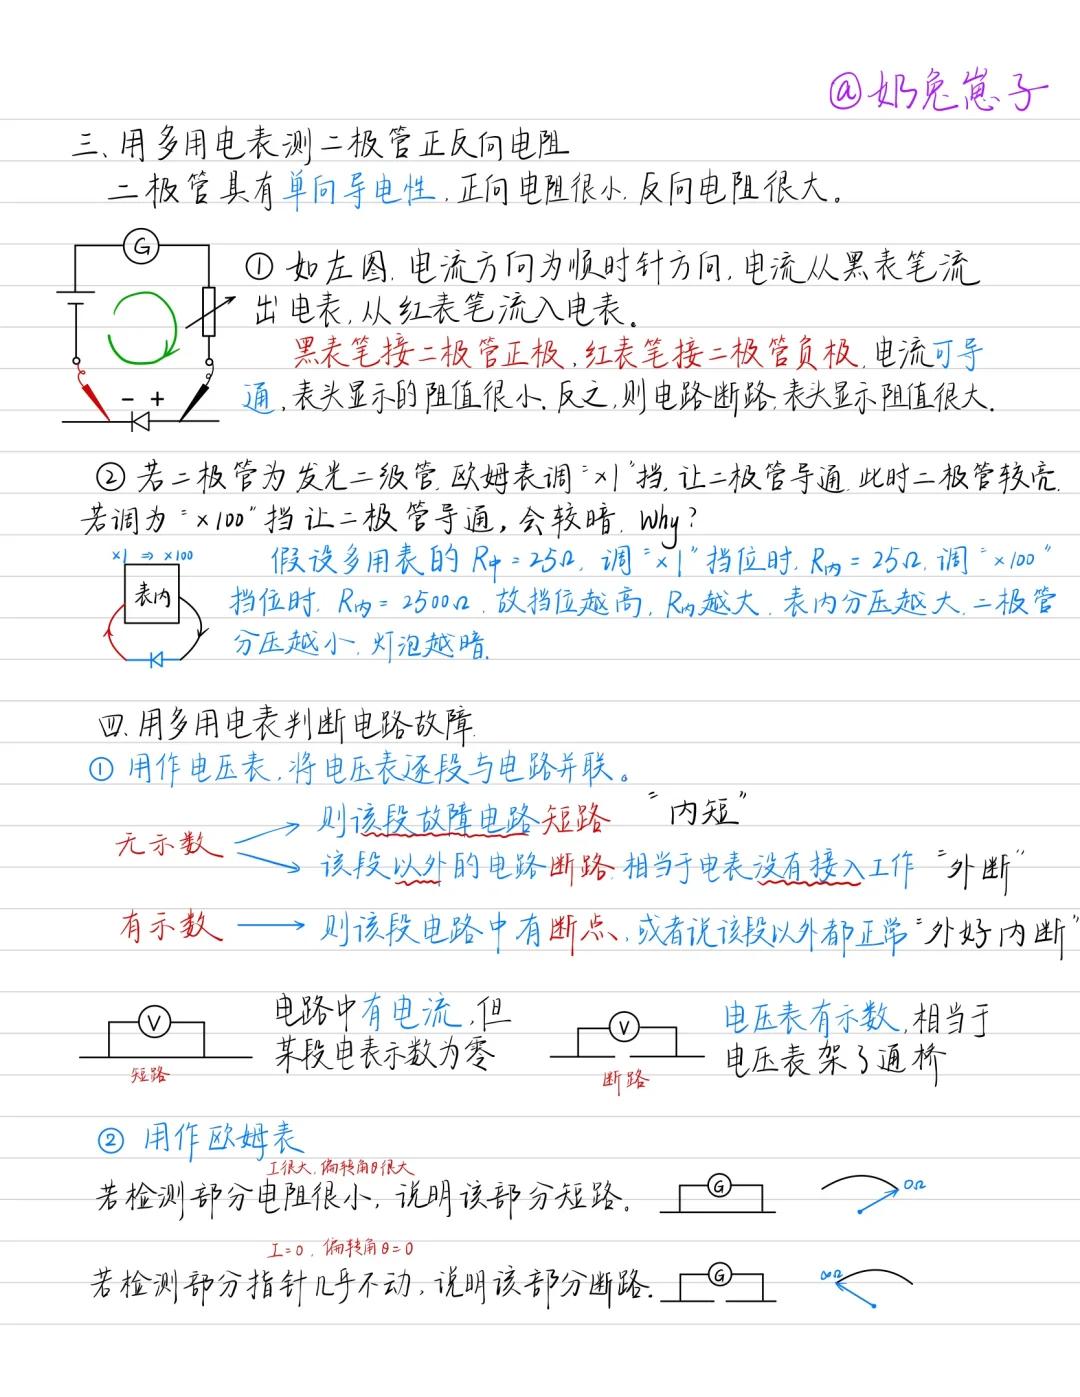 @奶兔崽子
三、用多用电表测二极管正反向电阻
二极管具有单向导电性,正向电阻很小,反向电阻很大。
G
① 如左图,电流方向为顺时针方向,电流从黑表笔流
出电表,从红表笔流入电表。
黑表笔接二极管正极,红表笔接二极管负极,电流可导
通,表头显示的阻值很小.反之,则电路断路,表头显示阻值很大.
- +
② 若二极管为发光二级管,欧姆表调"×1"挡,让二极管导通,此时二极管较亮.
若调为"×100"挡让二极管导通,会较暗. Why?
×1 ⇒ ×100
表内
假设多用表的R中=25Ω,调"×1"挡位时,R内=25Ω,调"×100"
挡位时,R内=2500Ω,故挡位越高,R内越大,表内分压越大,二极管
分压越小,灯泡越暗.
四、用多用电表判断电路故障
① 用作电压表,将电压表逐段与电路并联。
无示数
则该段故障电路短路 "内短"
该段以外的电路断路,相当于电表没有接入工作 "外断"
有示数 → 则该段电路中有断点,或者说该段以外都正常"外好内断"
V
短路
电路中有电流,但
某段电表示数为零
V
断路
电压表有示数,相当于
电压表架了通桥
② 用作欧姆表
I很大,偏转角θ很大
若检测部分电阻很小,说明该部分短路。
G
0Ω
I=0,偏转角θ=0
若检测部分指针几乎不动,说明该部分断路.
G
∞Ω